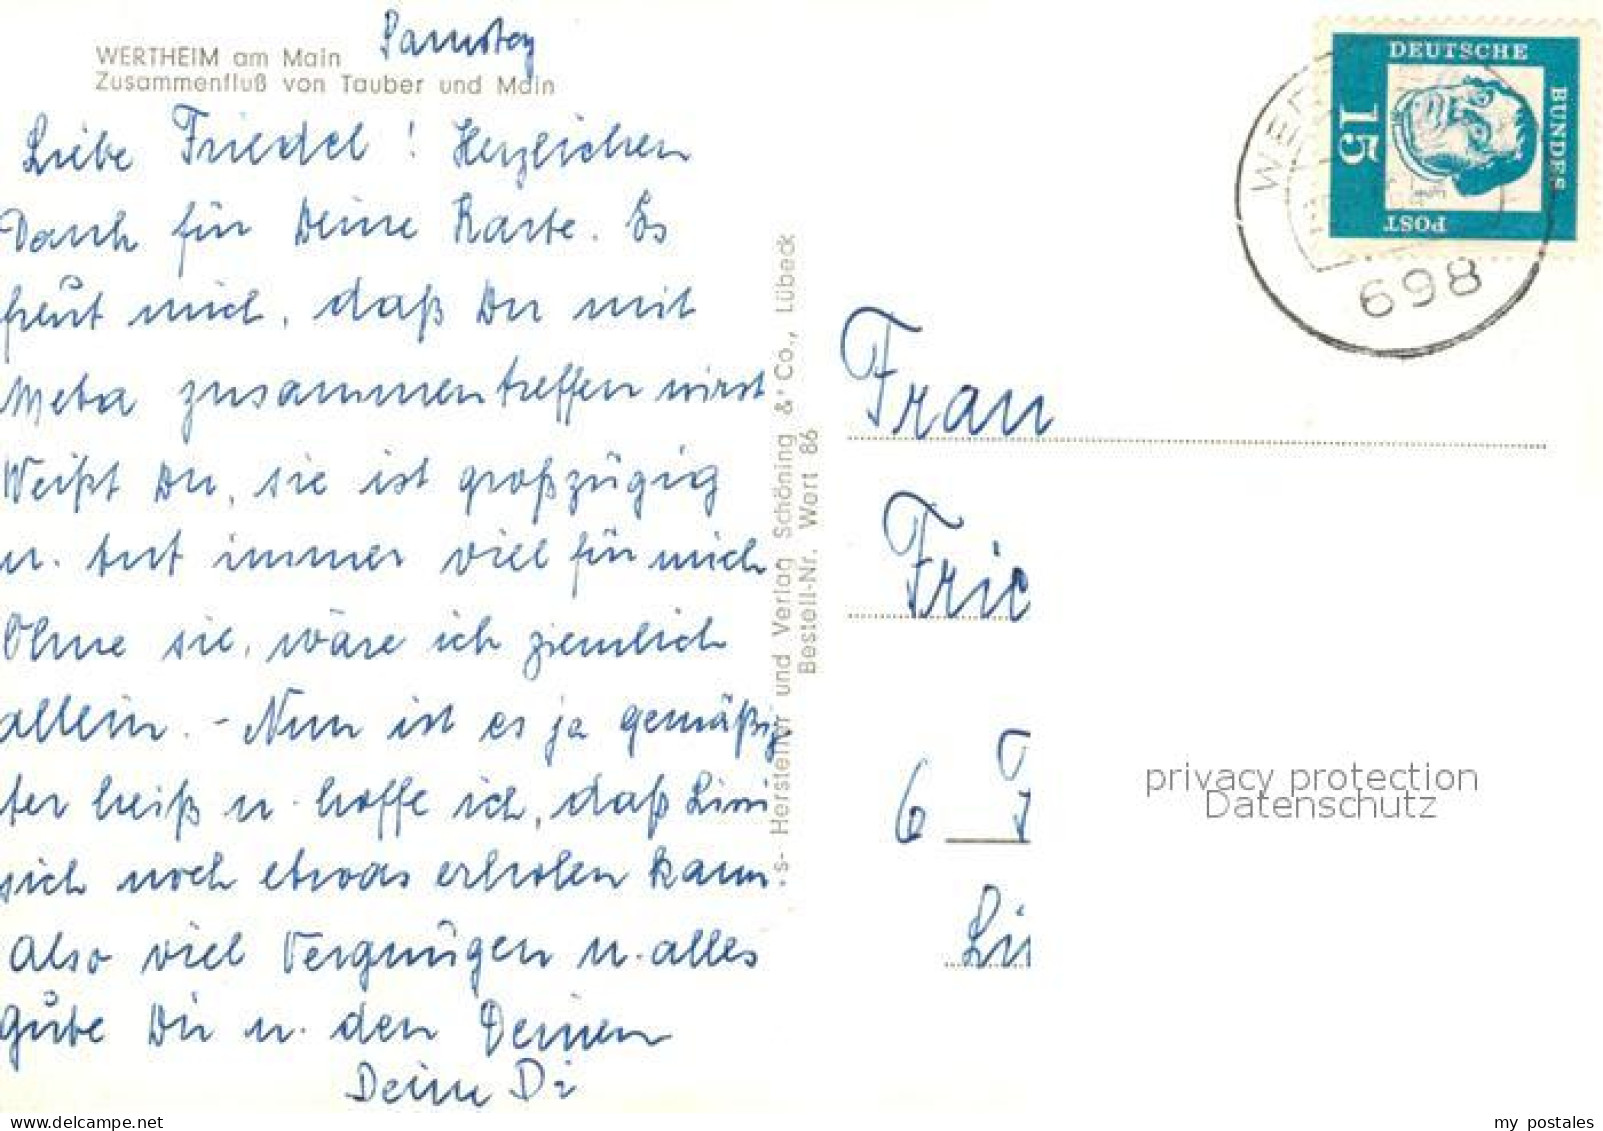 WERTHEIM am Main
Zusammenfluß von Tauber und Main
Samstag
Liebe Friedel! Herzlichen
Dank für Deine Karte. Es
freut mich, daß Du mit
Meta zusammentreffen wirst
Weißt Du, sie ist großzügig
u. tut immer viel für mich
Ohne sie, wäre ich ziemlich
allein. - Nun ist es ja gemäßig
ter heiß u. hoffe ich, daß
sich noch etwas erholen kann.
Also viel Vergnügen u. alles
Gute Dir u. den Deinen
Deine Di
-s- Hersteller und Verlag Schöning & Co., Lübeck
Bestell-Nr. Wert 86
DEUTSCHE
BUNDES
POST
15
698
Frau
Fric
6
privacy protection
Datenschutz
my postales